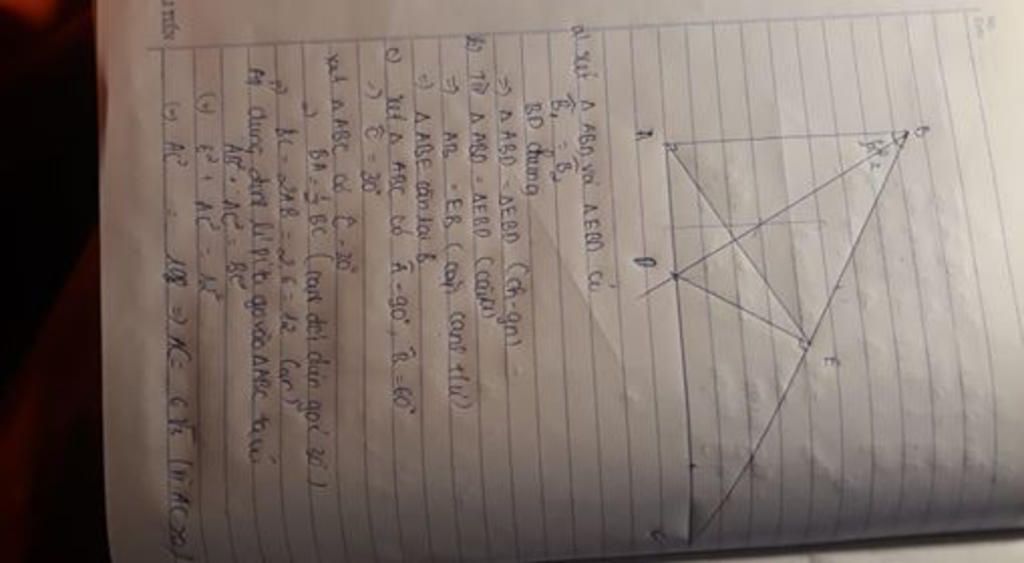 B
1 2
A
D
E
C
a) xét △ ABD và △ EBD có
B̂₁ = B̂₂
BD chung
=> △ ABD = △ EBD (ch-gn)
b) Từ △ ABD = △ EBD (câu a)
=> AB = EB (cạnh tương tự)
=> △ ABE cân tại B
c) xét △ ABC có Â = 90°, B̂ = 60°
=> Ĉ = 30°
xét △ ABC có Ĉ = 30°
=> BA = ½ BC (cạnh đối diện góc 30°)
=> BC = 2AB = 2.6 = 12 (cm)
Áp dụng định lí pi ta go vào △ABC ta có
AB² + AC² = BC²
(=) 6² + AC² = 12²
(=) AC² = 108 => AC = 6√3 (vì AC>0)